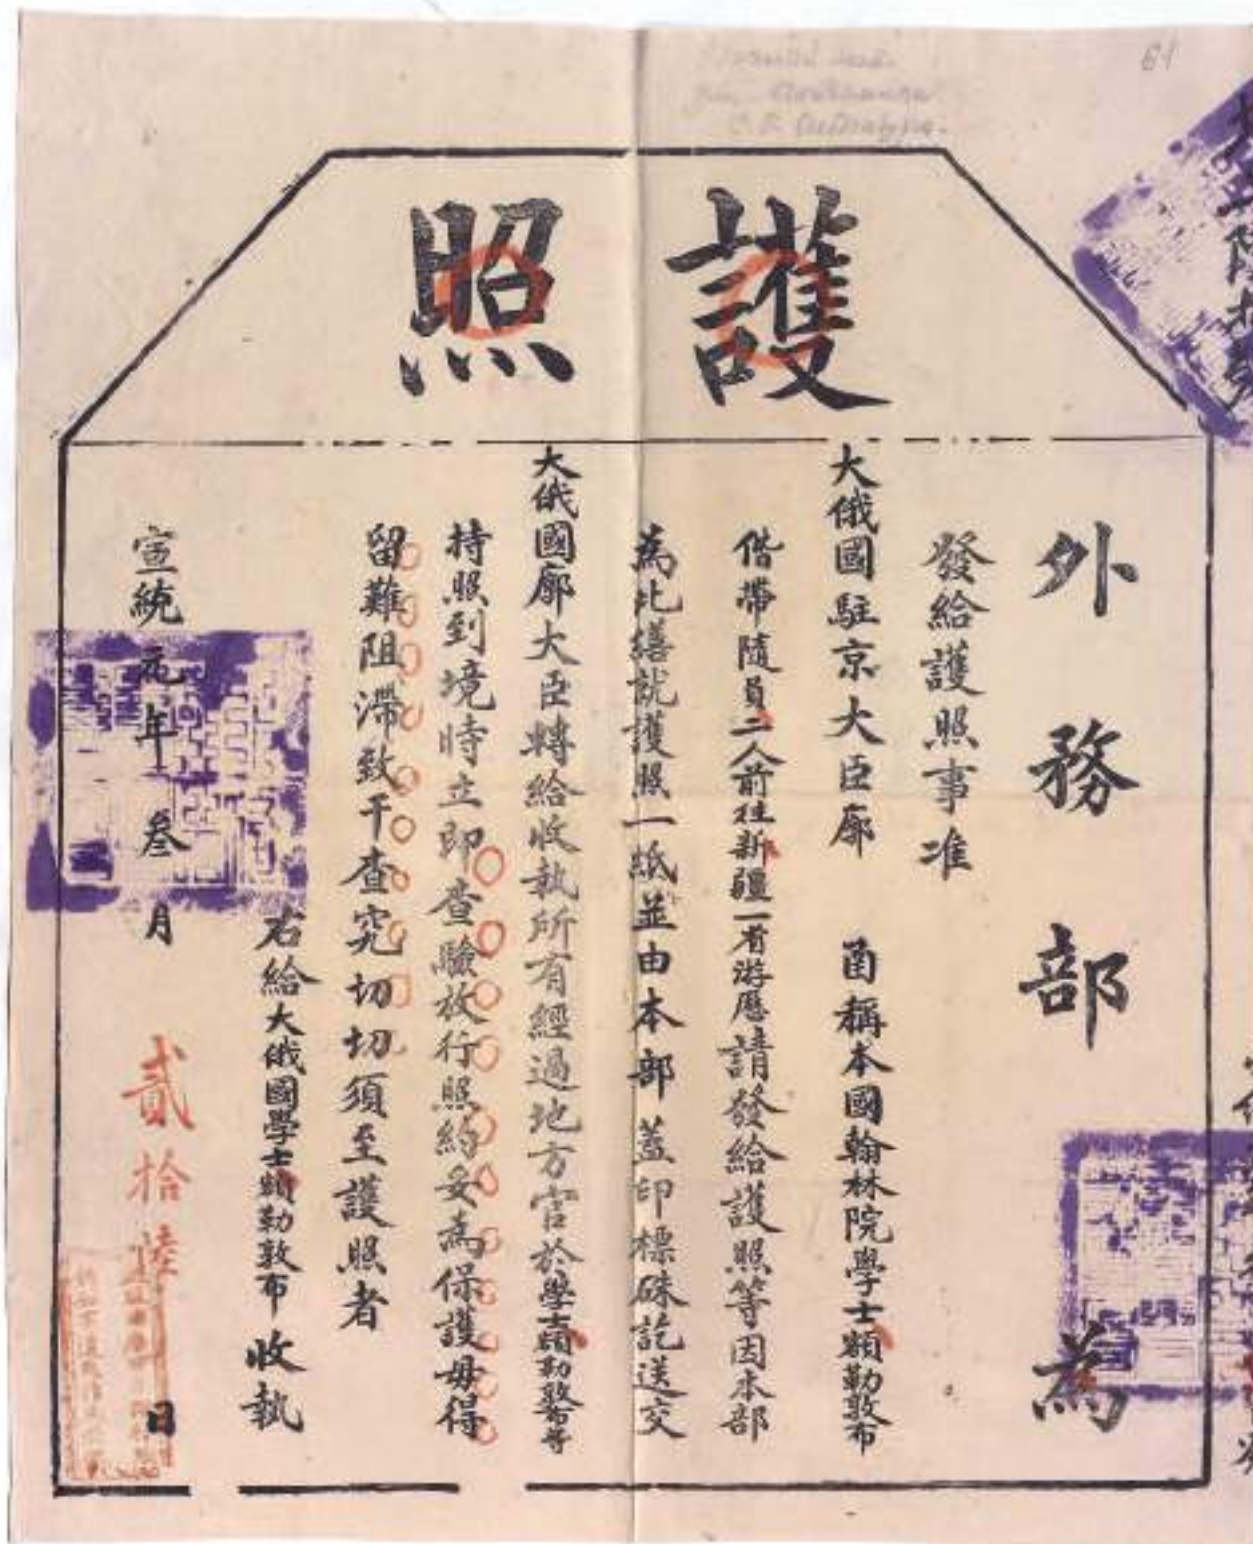 61
護照
外務部 為
發給護照事准
大俄國駐京大臣廓 函稱本國翰林院學士額勒敦布
偕帶隨員二人前往新疆一省游歷請發給護照等因本部
為此繕就護照一紙並由本部蓋印標硃訖送交
大俄國廓大臣轉給收執所有經過地方官於學士額勒敦布等
持照到境時立即查驗放行照約妥為保護毋得
留難阻滯致干查究切切須至護照者
右給大俄國學士額勒敦布收執
宣統元年叁月貳拾陸日